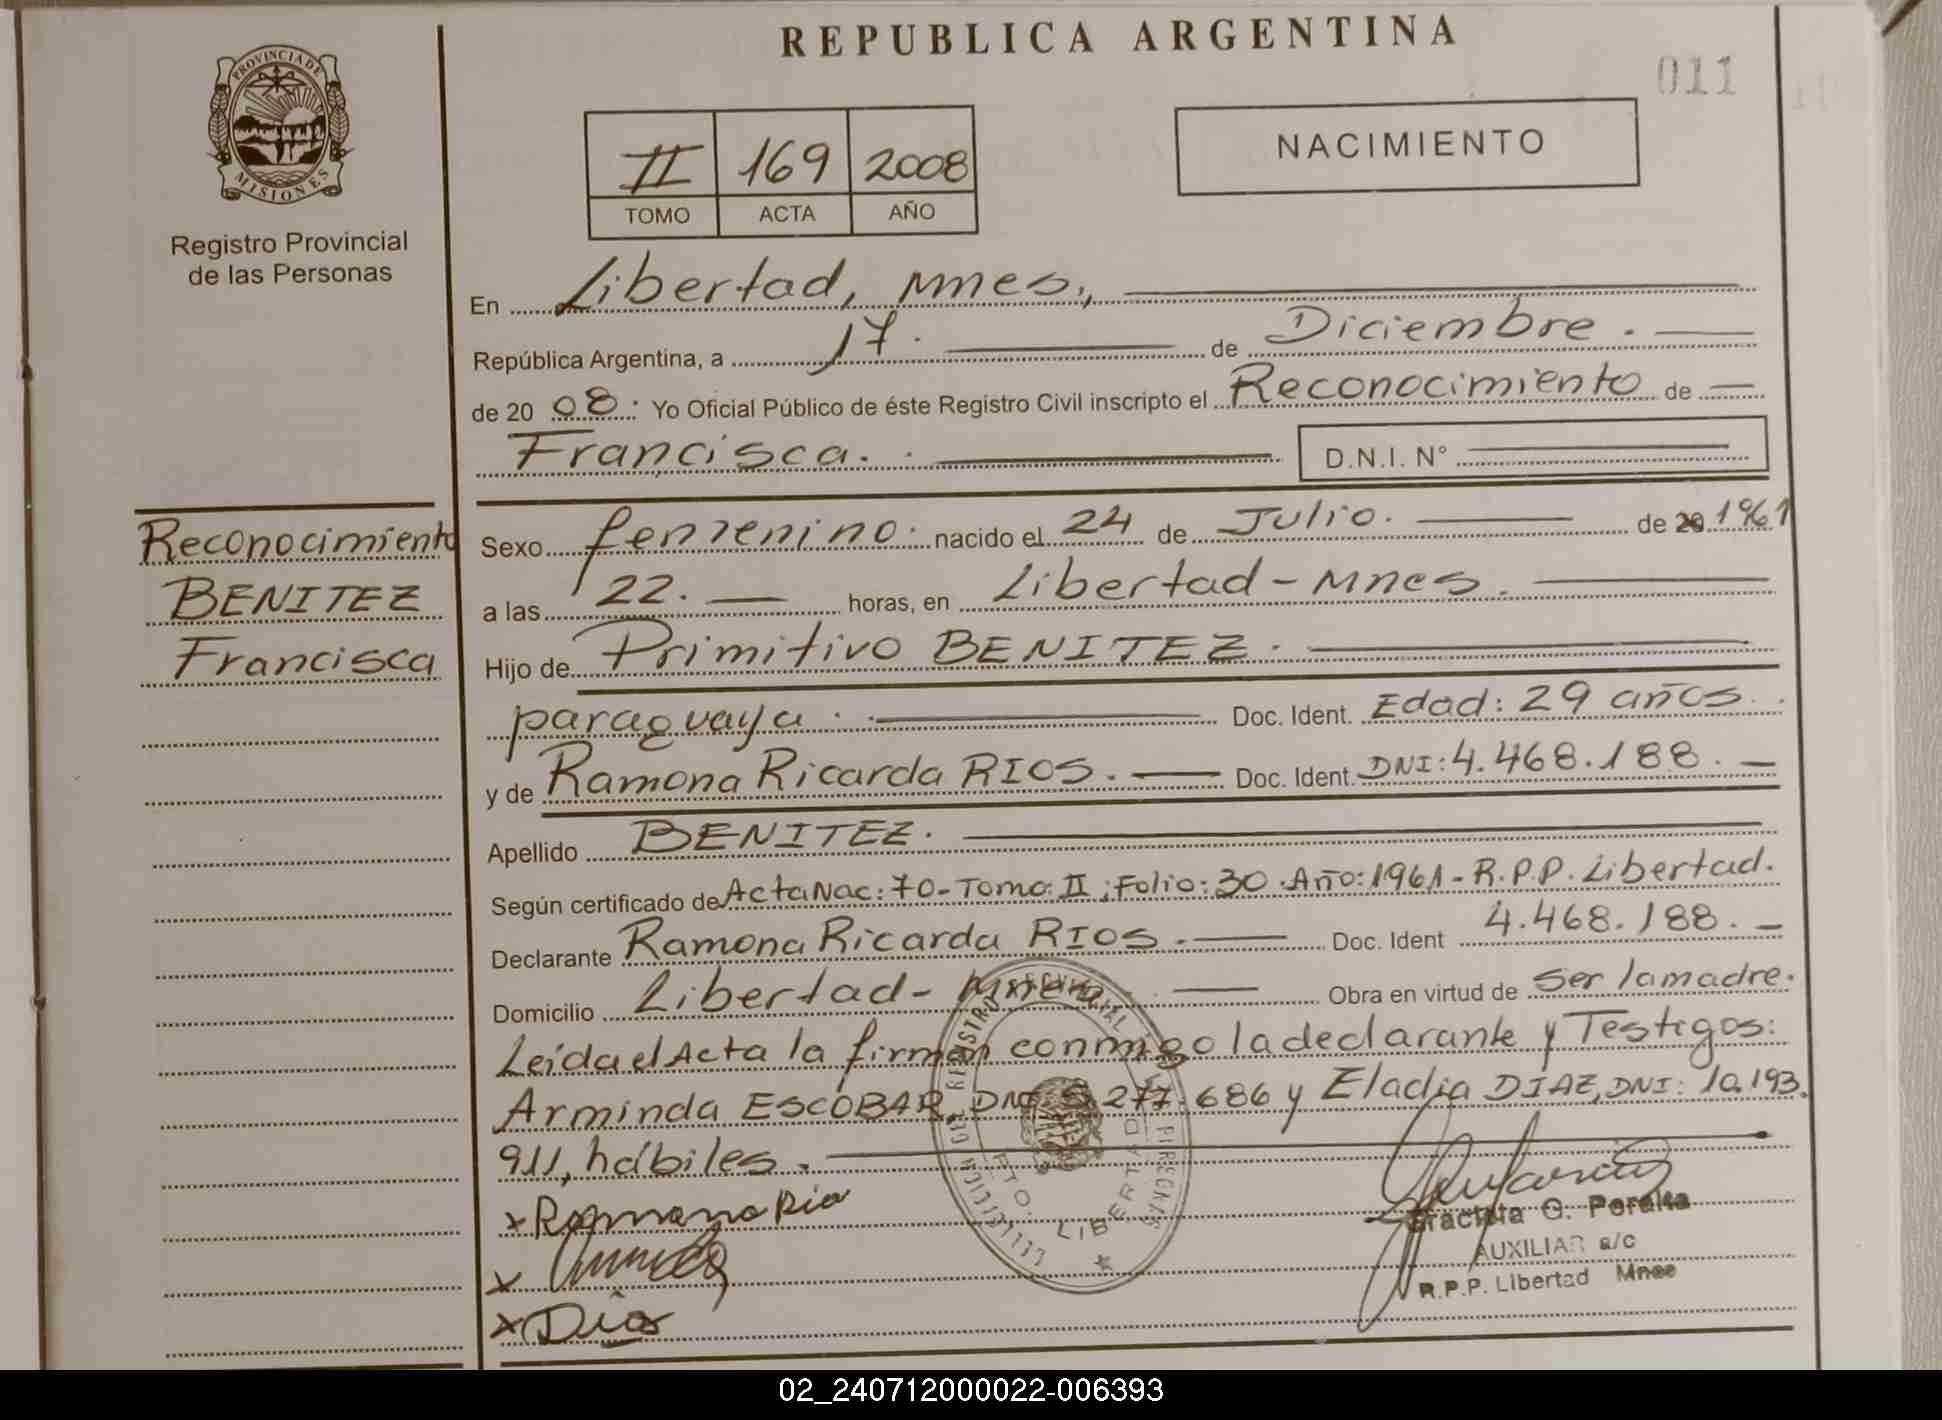 REPUBLICA ARGENTINA
011
PROVINCIA DE
MISIONES
Registro Provincial
de las Personas
II 169 2008
TOMO ACTA AÑO
NACIMIENTO
En Libertad, Mnes.,
República Argentina, a 17. de Diciembre.
de 20 08. Yo Oficial Público de éste Registro Civil inscripto el Reconocimiento de
Francisca. D.N.I. N°
Reconocimiento
BENITEZ
Francisca
Sexo femenino. nacido el 24 de Julio. de 20 1961
a las 22. horas, en Libertad - Mnes.
Hijo de Primitivo BENITEZ.
paraguaya. Doc. Ident. Edad: 29 años.
y de Ramona Ricarda RIOS. Doc. Ident. DNI: 4.468.188.
Apellido BENITEZ.
Según certificado de Acta Nac: 70 - Tomo: II ; Folio: 30 . Año: 1961 - R.P.P. Libertad.
Declarante Ramona Ricarda RIOS. Doc. Ident 4.468.188.
Domicilio Libertad - Mnes. Obra en virtud de ser la madre.
Leída el Acta la firman conmigo la declarante y Testigos:
Arminda ESCOBAR, DNI. 5.277.686 y Eladia DIAZ, DNI: 10.193.
911, hábiles.
x Ramona Rio
x
x Dia
PTO. LIBERTAD
Graciela G. Peralta
AUXILIAR a/c
R.P.P. Libertad Mnes
02_240712000022-006393